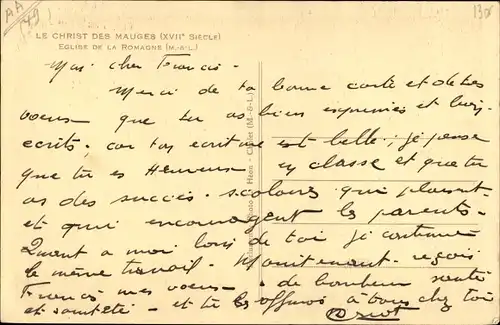 AA
(49)
130
LE CHRIST DES MAUGES (XVIIe SIÈCLE)
EGLISE DE LA ROMAGNE (M.-&-L.)
Mon cher Francis.
Merci de ta bonne carte et de tes
voeux que tu as bien exprimés et bien
écrits, car ton écriture est belle; je pense
que tu es Heureux en classe et que tu
as des succès scolaires qui plaisent
et qui encouragent les parents.
Quant à moi loin de toi je continue
le même travail. Maintenant reçois
Francis mes voeux de bonheur santé
et sainteté. et tu les offriras à tous chez toi
Photo Héon - Cholet (M.-&-L.)